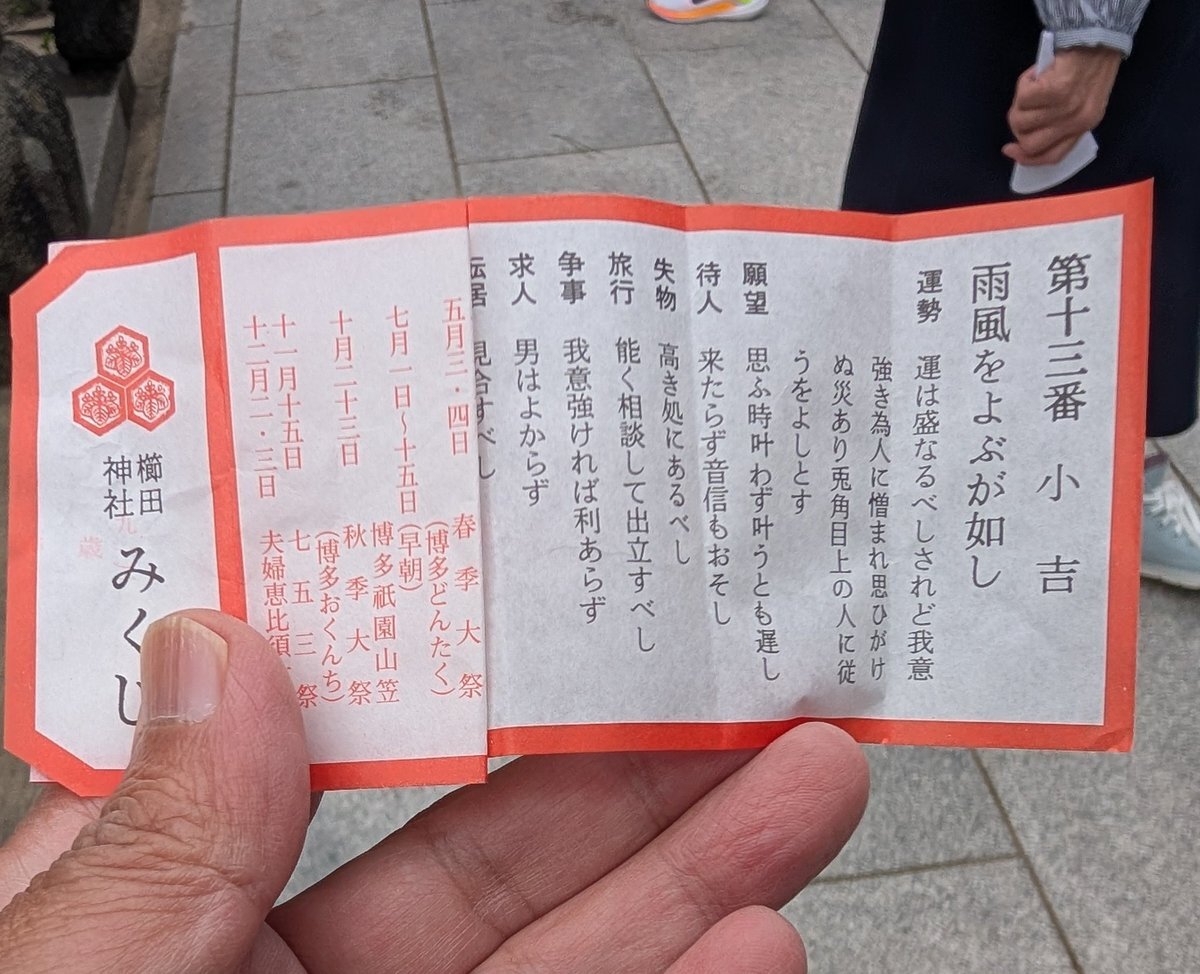 第十三番 小吉
雨風をよぶが如し
運勢 運は盛なるべしされど我意
強き為人に憎まれ思ひがけ
ぬ災あり兎角目上の人に従
うをよしとす
願望 思ふ時叶わず叶うとも遅し
待人 来たらず音信もおそし
失物 高き処にあるべし
旅行 能く相談して出立すべし
争事 我意強ければ利あらず
求人 男はよからず
転居 見合すべし
五月三・四日 春季大祭
(博多どんたく)
七月一日〜十五日 (早朝)
博多祇園山笠
十月二十三日 秋季大祭
(博多おくんち)
十一月十五日 七五三祭
十二月二・三日 夫婦恵比須
櫛田
神社
みくじ
九
歳